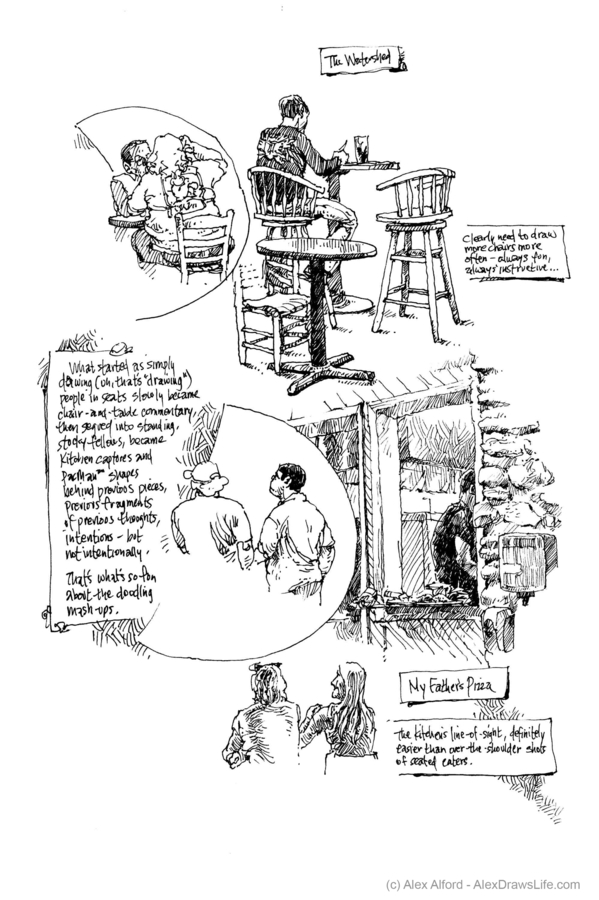 The Watershed
Clearly need to draw
more chairs more
often - always fun,
always instructive...
What started as simply
drawing (uh, that's "drawing")
people in seats slowly became
chair-and-table commentary,
then segued into standing,
stocky-fellows, became
kitchen captures and
PacMan™ shapes
behind previous pieces,
previous fragments
of previous thoughts,
intentions - but
not intentionally.
That's what's so fun
about the doodling
mash-ups.
My Father's Pizza
The kitchen's line-of-sight, definitely
easier than over-the-shoulder shots
of seated eaters.
(c) Alex Alford - AlexDrawsLife.com